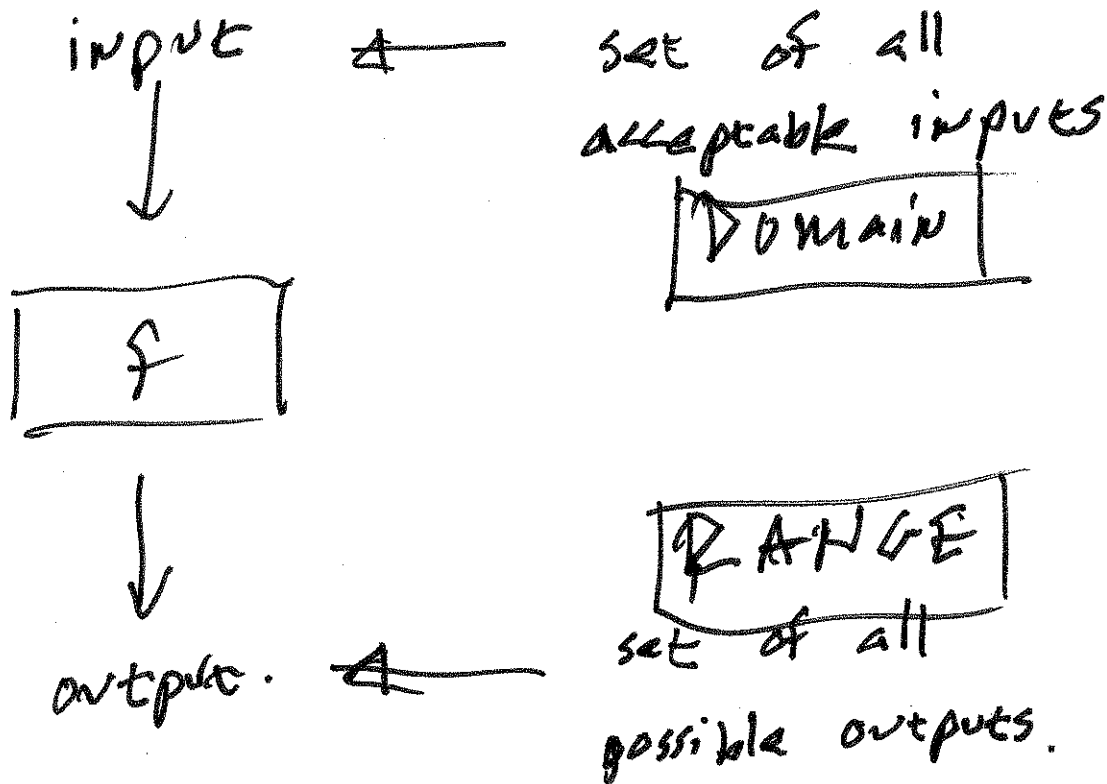 input
set of all
acceptable inputs
Domain
f
RANGE
set of all
output.
possible outputs.